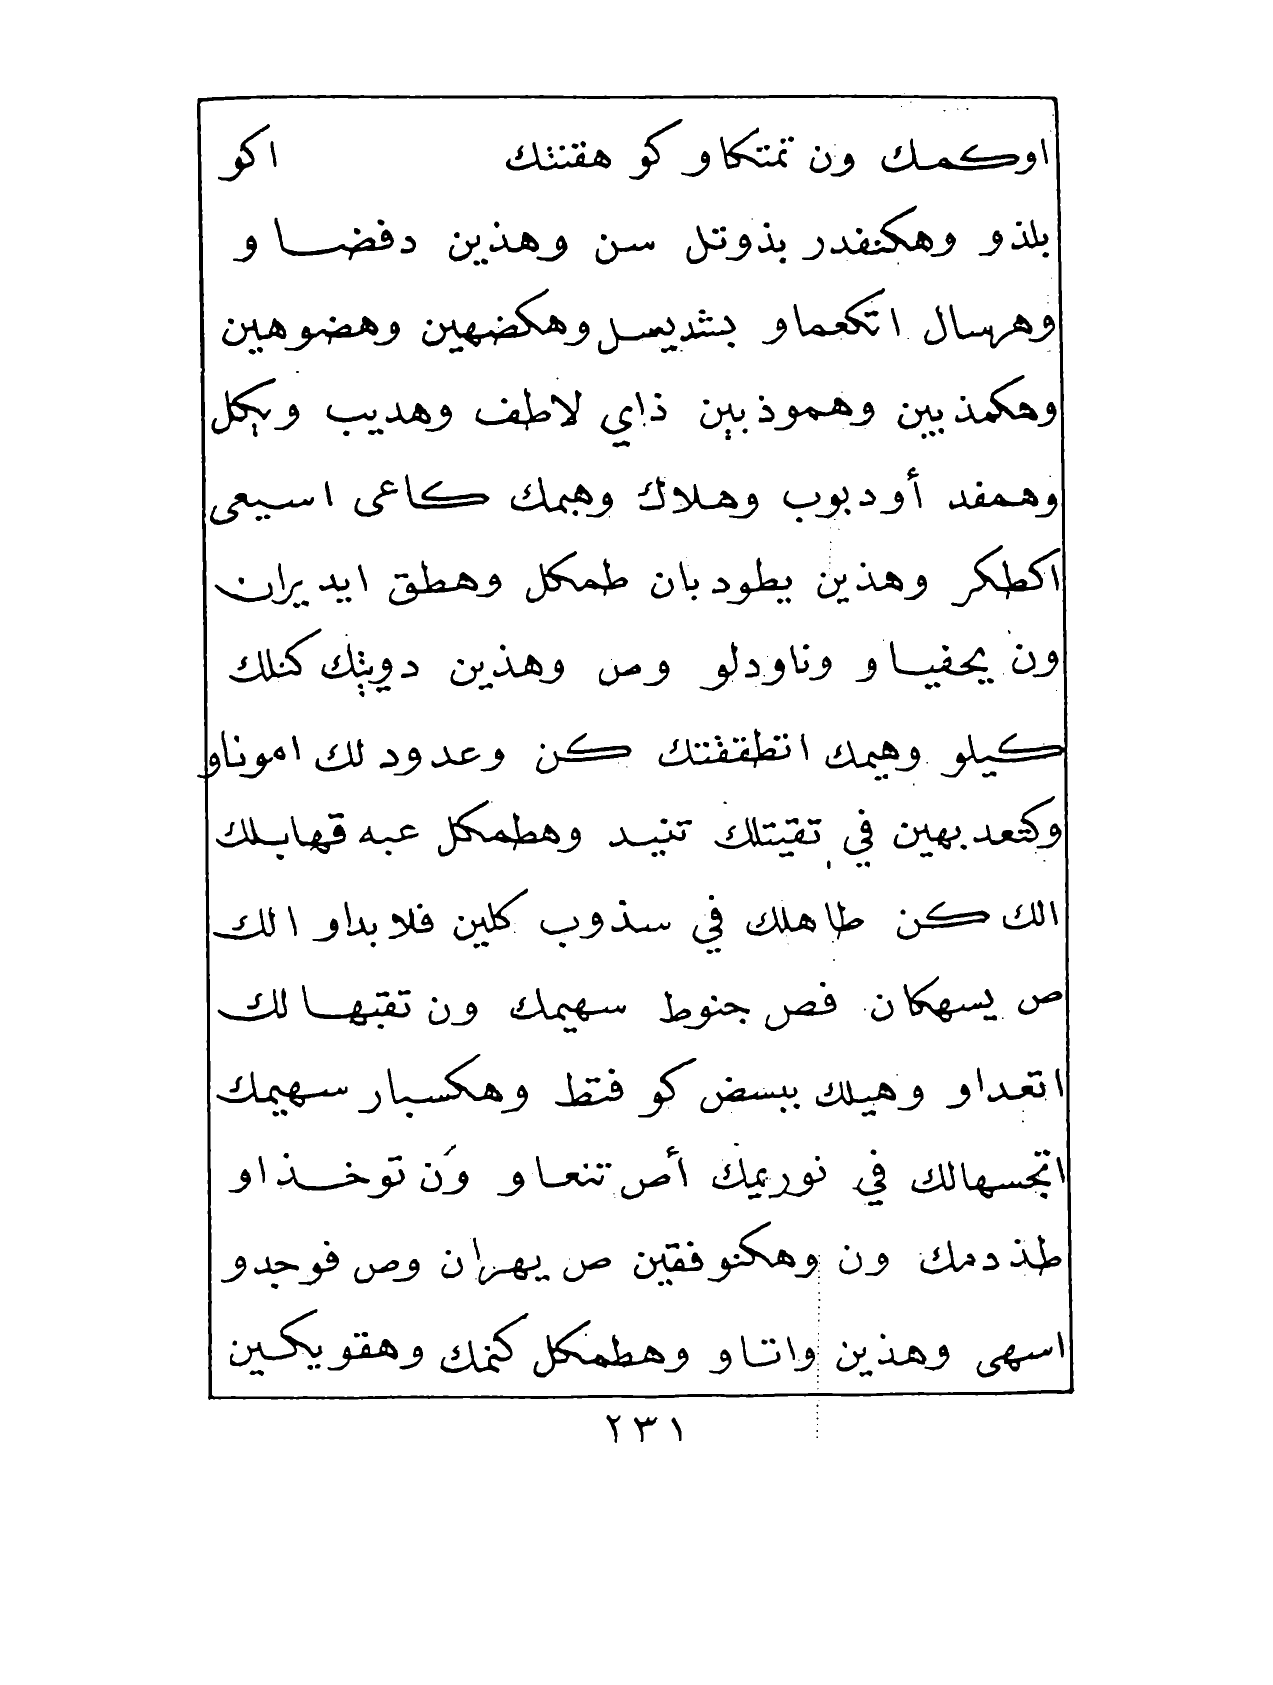 اوكمك ون تمتكاو كو هقنتك اكو
بلذو وهكنفدر بذوتل سن وهذين دفضاو
وهرسال اتكعماو بثديسل وهكضهين وهضوهين
وهكمذيين وهموذيين ذاي لاطف وهديب ويكل
وهمفد أودبوب وهلاك وهبمك كاعى اسيعى
اكطكر وهذين يطودبان طمكل وهطق ايديران
ون يحفياو وناودلو وص وهذين دويثك كنلك
كيلو وهيمك اتطقفتك كن وعدود لك اموناو
وكتعدبهين في تقيتلك تنيد وهطمكل عبه قهابلك
الك كن طاهلك في سذوب كلين فلا بداو الك
ص يسهكان فص جنوط سهيمك ون تقبهالك
اتعداو وهيلك ببسض كو فتط وهكسبار سهيمك
اتجسهالك في نوريمك أص تنعاو ون توخذاو
طذدمك ون وهكنوفقين ص يهران وص فوجدو
اسهى وهذين واتاو وهطمكل كنمك وهقويكين
٢٣١